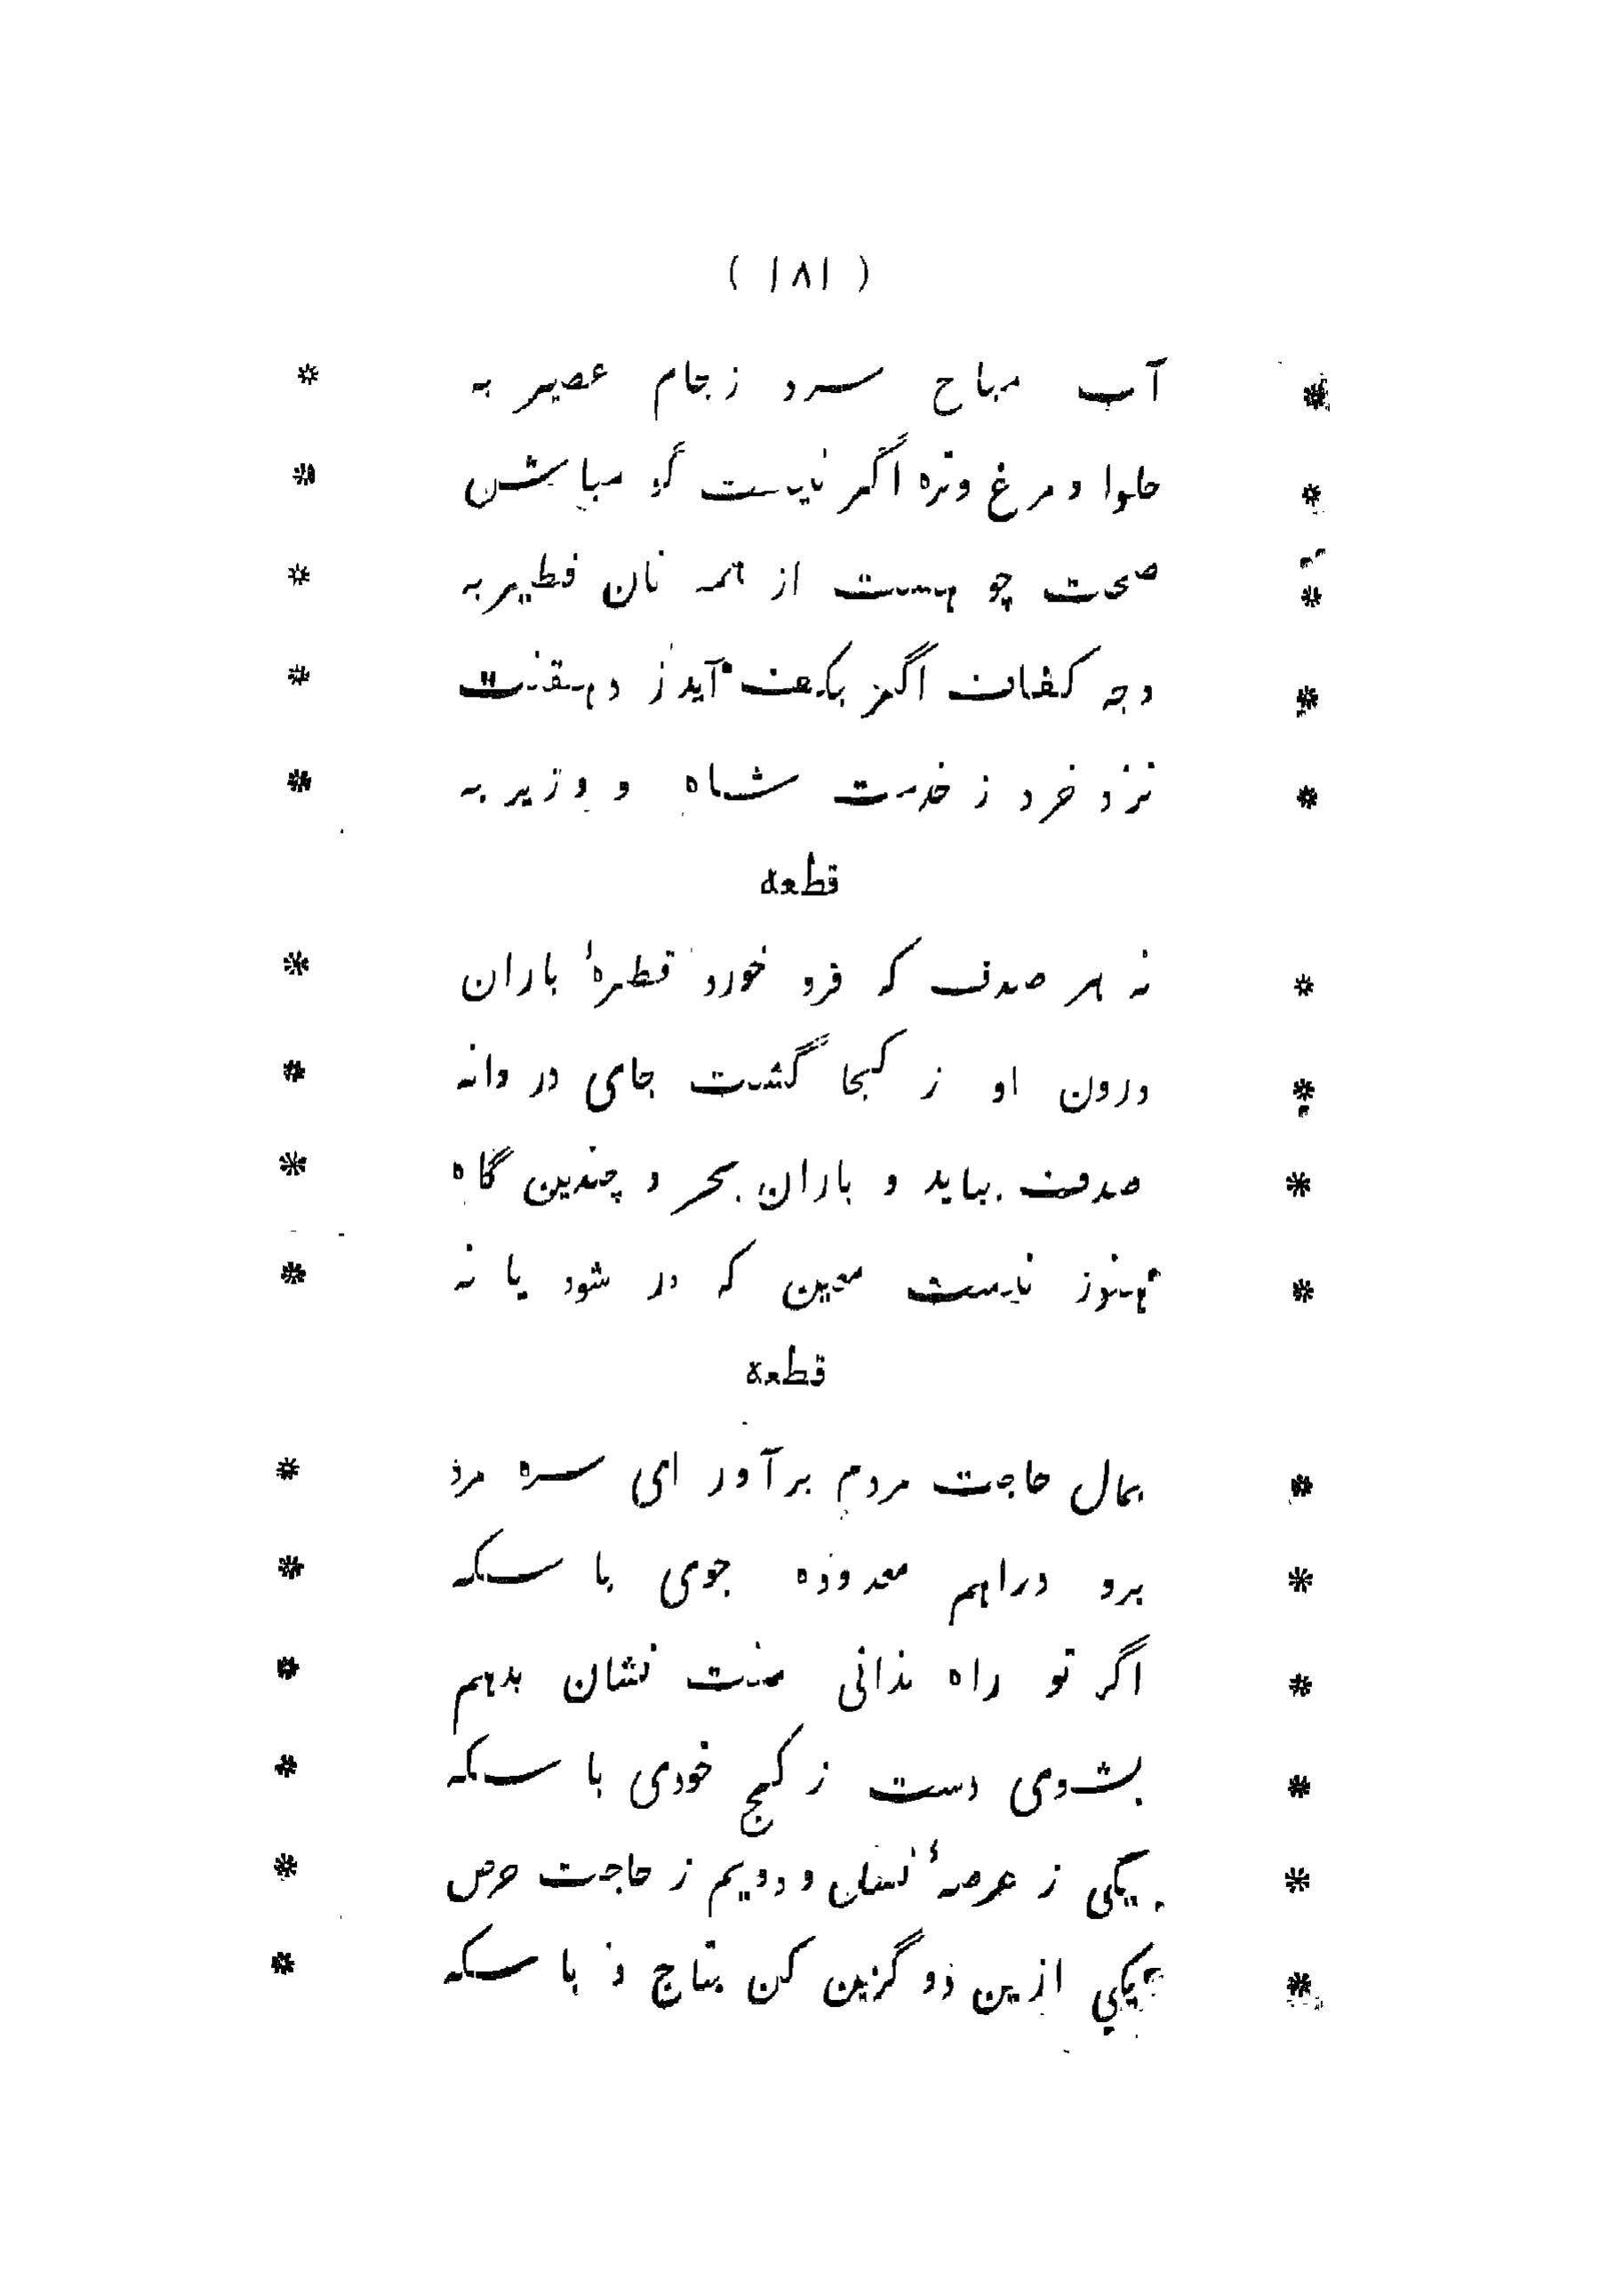 ( ۱۸۱ )
* آب مباح سرد ز جام عصیر به *
* حلوا و مرغ و بره اگر نیست گو مباش *
* صحت چو هست از همه نان فطیر به *
* وجه کفاف اگر بکف آید ز دهقنت *
* نزد خرد ز خدمت شاه و وزیر به *
قطعه
* نه هر صدف که فرو خورد قطرهٔ باران *
* درون او ز کجا گشت جای در دانه *
* صدف بباید و باران بحر و چندین گاه *
* هنوز نیست معین که در شود یا نه *
قطعه
* بمال حاجت مردم برآور ای سره مرد *
* برو دراهم معدوده جوی با سکه *
* اگر تو راه ندانی منت نشان بدهم *
* بشوی دست ز خودی با سکه *
* یکی ز عرصهٔ و دویم ز حاجت حرص *
* یکی ازین دو گزین کن با سکه *